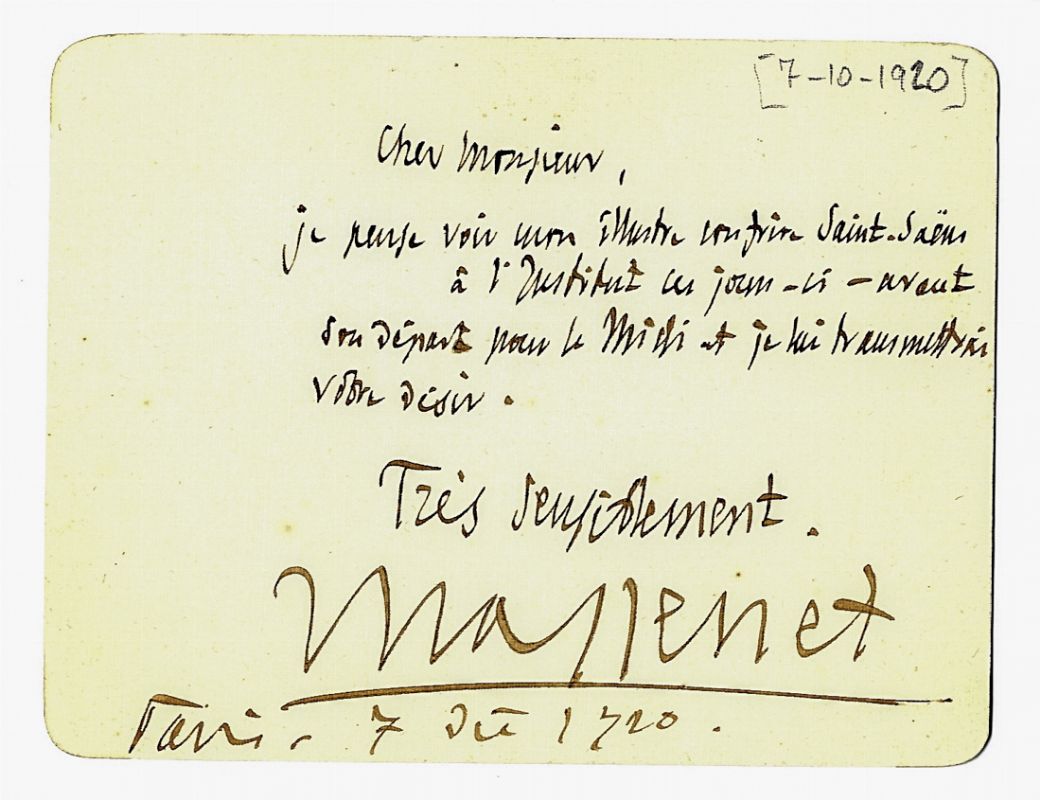 [7-10-1920]
Cher Monsieur,
je pense voir mon illustre confrère Saint-Saëns
à l'Institut ces jours-ci - avant
son départ pour le Midi et je lui transmettrai
votre désir.
Très sensiblement.
Massenet
Paris - 7